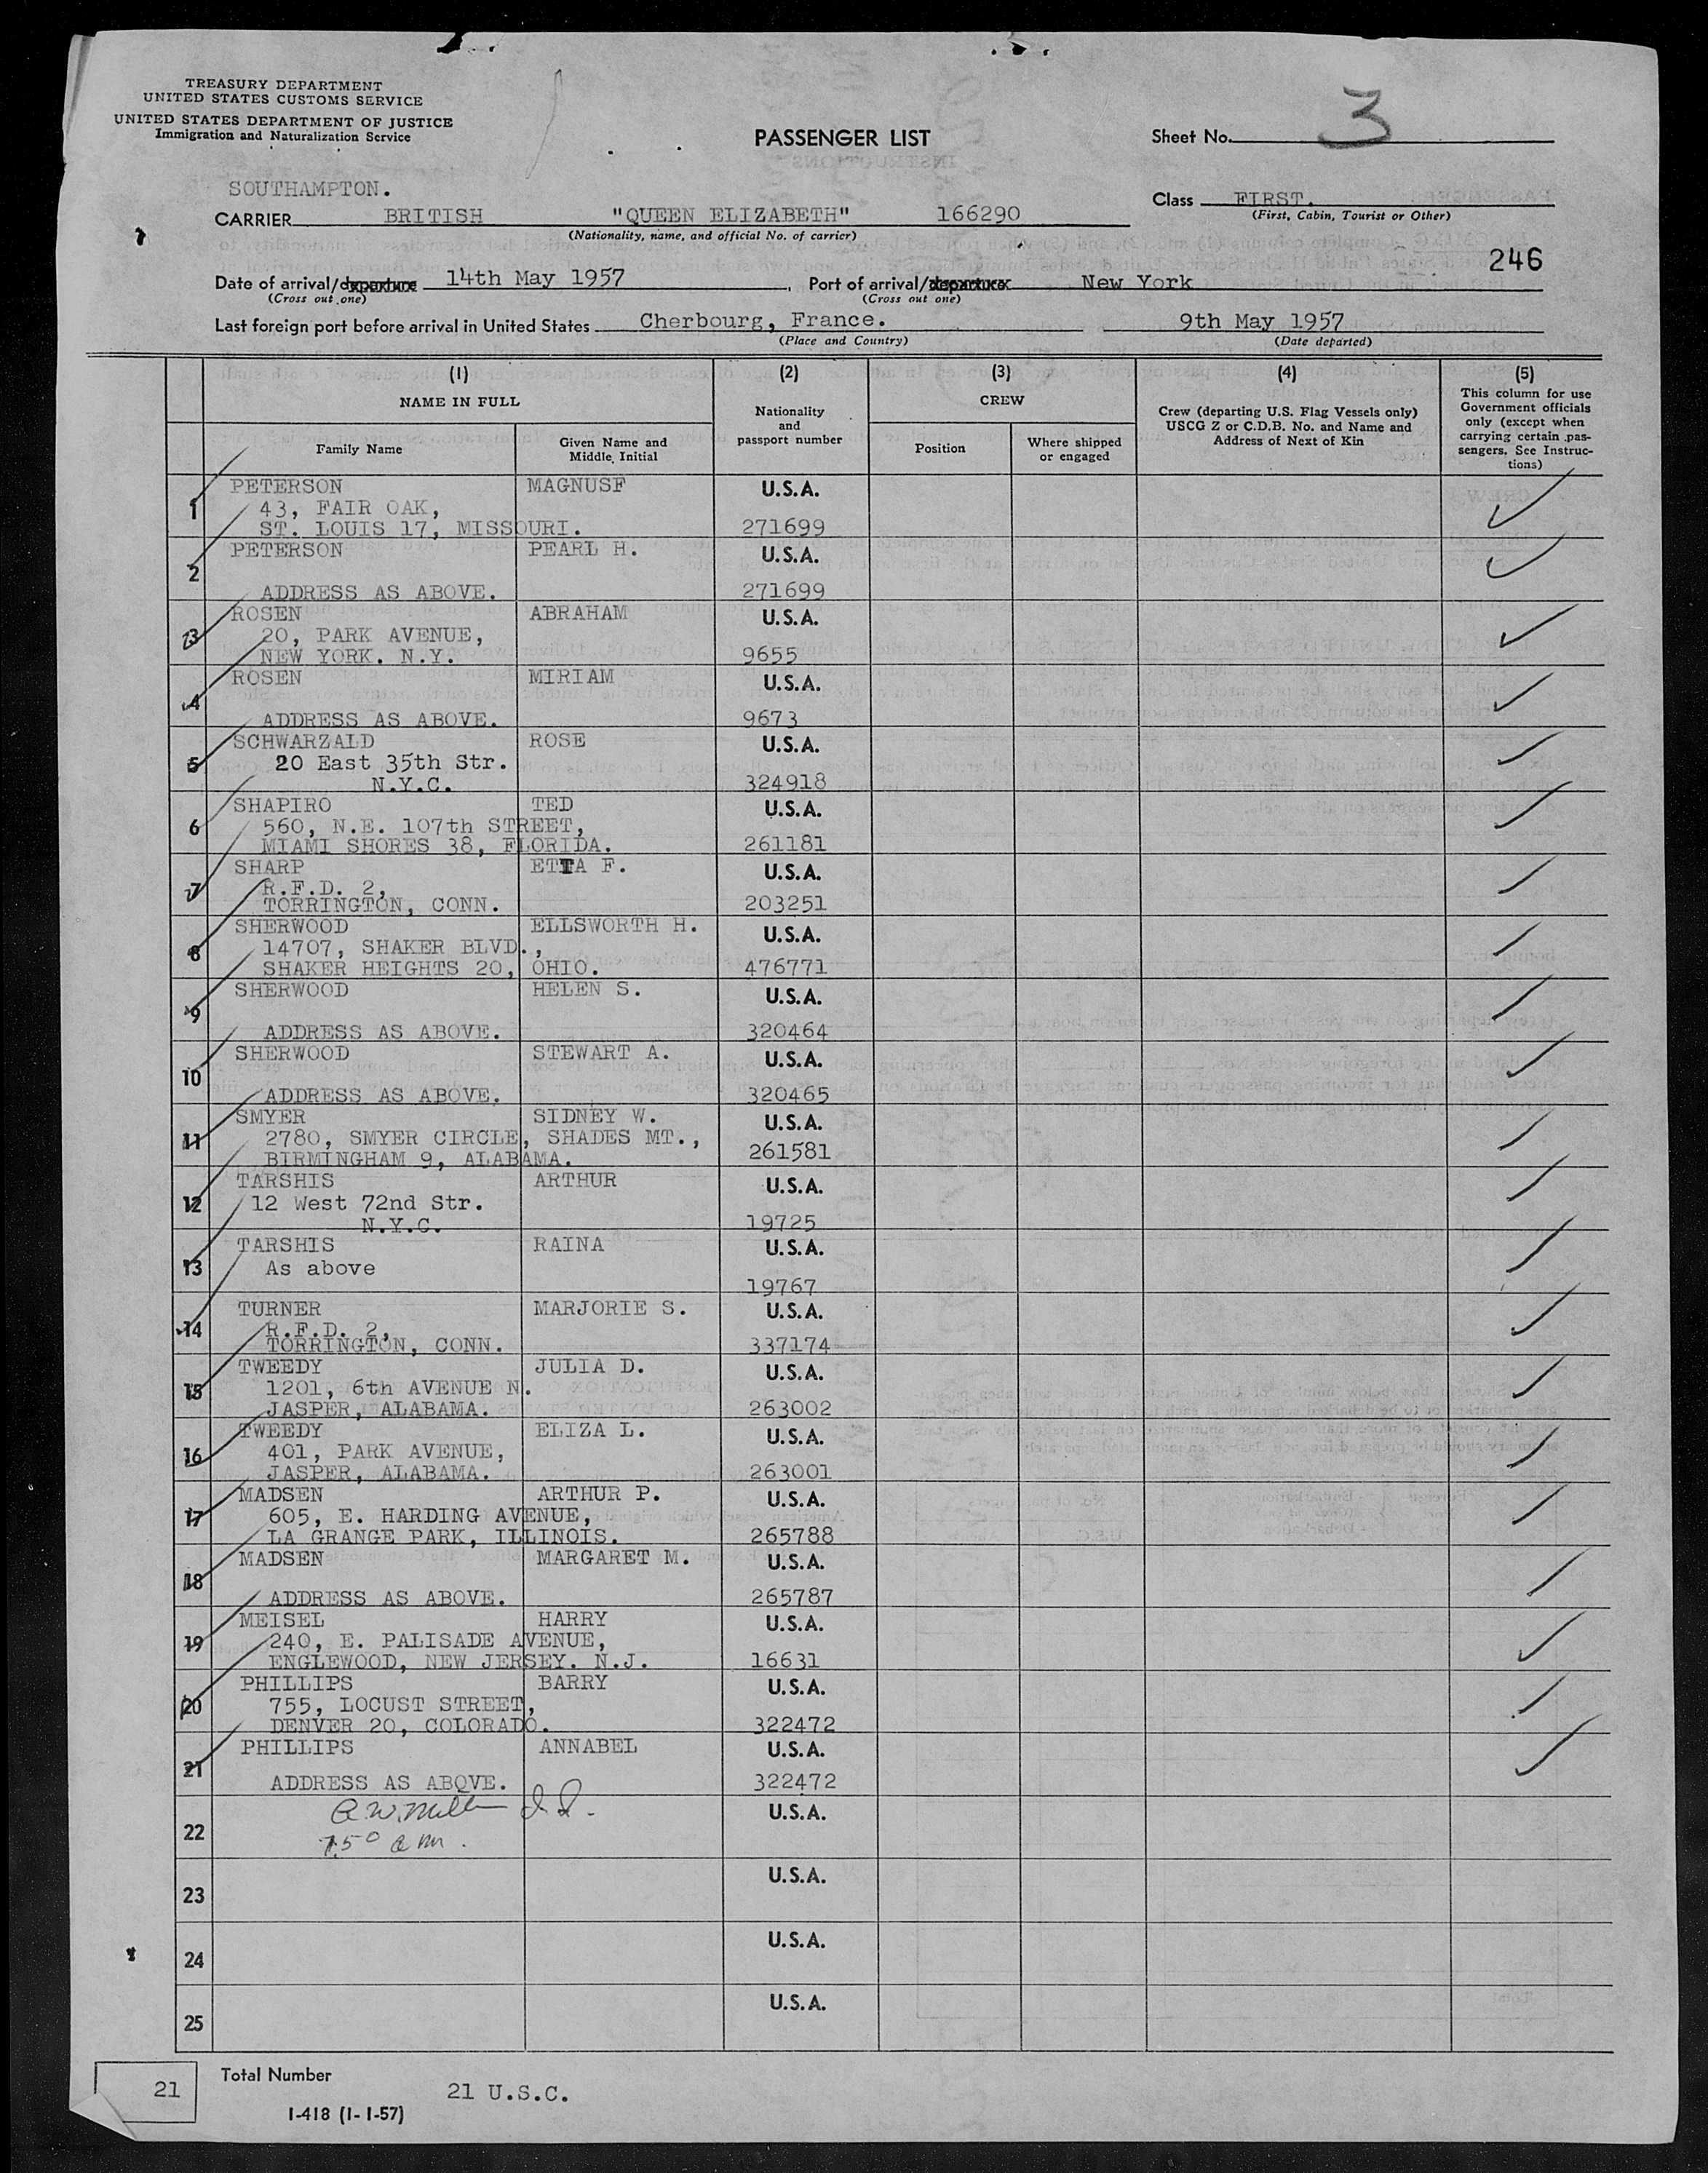 TREASURY DEPARTMENT
UNITED STATES CUSTOMS SERVICE
UNITED STATES DEPARTMENT OF JUSTICE
Immigration and Naturalization Service
PASSENGER LIST
Sheet No. 3
SOUTHAMPTON.
CARRIER BRITISH "QUEEN ELIZABETH" 166290
(Nationality, name, and official No. of carrier)
Class FIRST.
(First, Cabin, Tourist or Other)
246
Date of arrival/departure 14th May 1957, Port of arrival/departure New York
(Cross out one) (Cross out one)
Last foreign port before arrival in United States Cherbourg, France. 9th May 1957
(Place and Country) (Date departed)
(1) (2) (3) (4) (5)
NAME IN FULL
Family Name
Given Name and
Middle Initial
Nationality
and
passport number
CREW
Position
Where shipped
or engaged
Crew (departing U.S. Flag Vessels only)
USCG Z or C.D.B. No. and Name and
Address of Next of Kin
This column for use
Government officials
only (except when
carrying certain pas-
sengers. See Instruc-
tions)
1 PETERSON MAGNUSF U.S.A.
43, FAIR OAK,
ST. LOUIS 17, MISSOURI. 271699
2 PETERSON PEARL H. U.S.A.
ADDRESS AS ABOVE. 271699
3 ROSEN ABRAHAM U.S.A.
20, PARK AVENUE,
NEW YORK. N.Y. 9655
4 ROSEN MIRIAM U.S.A.
ADDRESS AS ABOVE. 9673
5 SCHWARZALD ROSE U.S.A.
20 East 35th Str.
N.Y.C. 324918
6 SHAPIRO TED U.S.A.
560, N.E. 107th STREET,
MIAMI SHORES 38, FLORIDA. 261181
7 SHARP ETTA F. U.S.A.
R.F.D. 2,
TORRINGTON, CONN. 203251
8 SHERWOOD ELLSWORTH H. U.S.A.
14707, SHAKER BLVD.,
SHAKER HEIGHTS 20, OHIO. 476771
9 SHERWOOD HELEN S. U.S.A.
ADDRESS AS ABOVE. 320464
10 SHERWOOD STEWART A. U.S.A.
ADDRESS AS ABOVE. 320465
11 SMYER SIDNEY W. U.S.A.
2780, SMYER CIRCLE, SHADES MT.,
BIRMINGHAM 9, ALABAMA. 261581
12 TARSHIS ARTHUR U.S.A.
12 West 72nd Str.
N.Y.C. 19725
13 TARSHIS RAINA U.S.A.
As above
19767
14 TURNER MARJORIE S. U.S.A.
R.F.D. 2,
TORRINGTON, CONN. 337174
15 TWEEDY JULIA D. U.S.A.
1201, 6th AVENUE N.
JASPER, ALABAMA. 263002
16 TWEEDY ELIZA L. U.S.A.
401, PARK AVENUE,
JASPER, ALABAMA. 263001
17 MADSEN ARTHUR P. U.S.A.
605, E. HARDING AVENUE,
LA GRANGE PARK, ILLINOIS. 265788
18 MADSEN MARGARET M. U.S.A.
ADDRESS AS ABOVE. 265787
19 MEISEL HARRY U.S.A.
240, E. PALISADE AVENUE,
ENGLEWOOD, NEW JERSEY. N.J. 16631
20 PHILLIPS BARRY U.S.A.
755, LOCUST STREET,
DENVER 20, COLORADO. 322472
21 PHILLIPS ANNABEL U.S.A.
ADDRESS AS ABOVE. 322472
22 U.S.A.
7.50 am.
23 U.S.A.
24 U.S.A.
25 U.S.A.
21 Total Number
21 U.S.C.
I-418 (1-1-57)